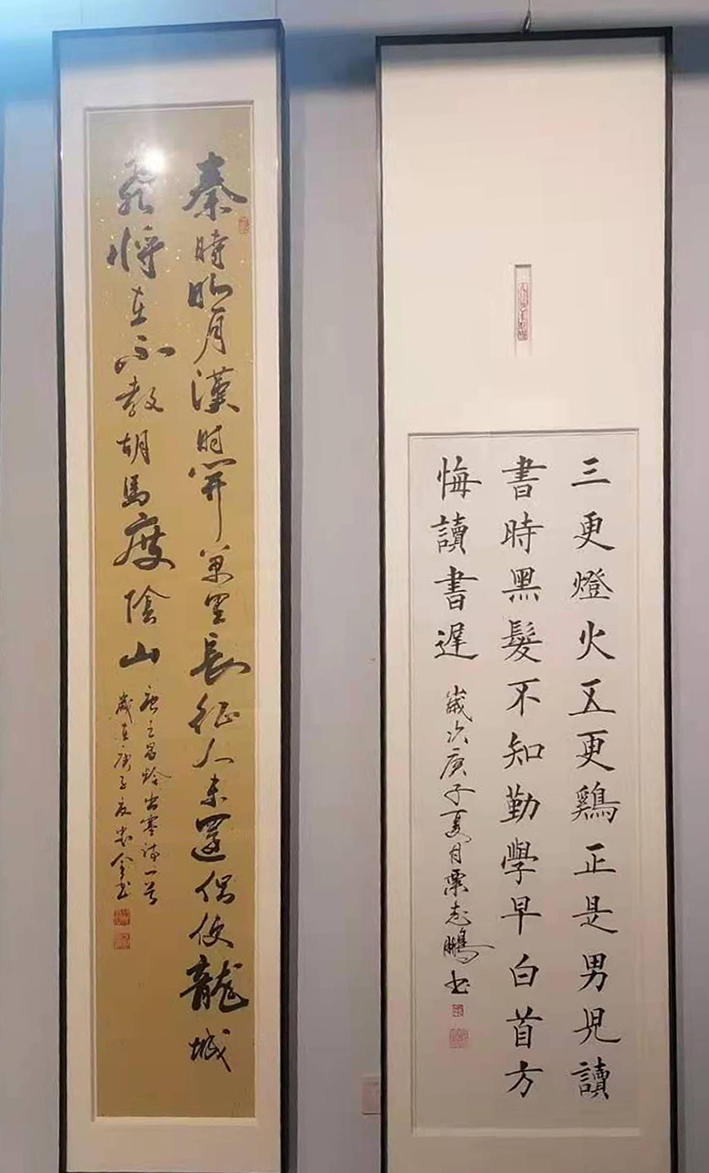 三更燈火五更鷄正是男兒讀
書時黑髮不知勤學早白首方
悔讀書遲
歲次庚子夏月栗志鵬書
秦時明月漢時關萬里長征人未還但使龍城
飛將在不教胡馬度陰山
唐王昌齡出塞詩一首
歲在庚子夏書